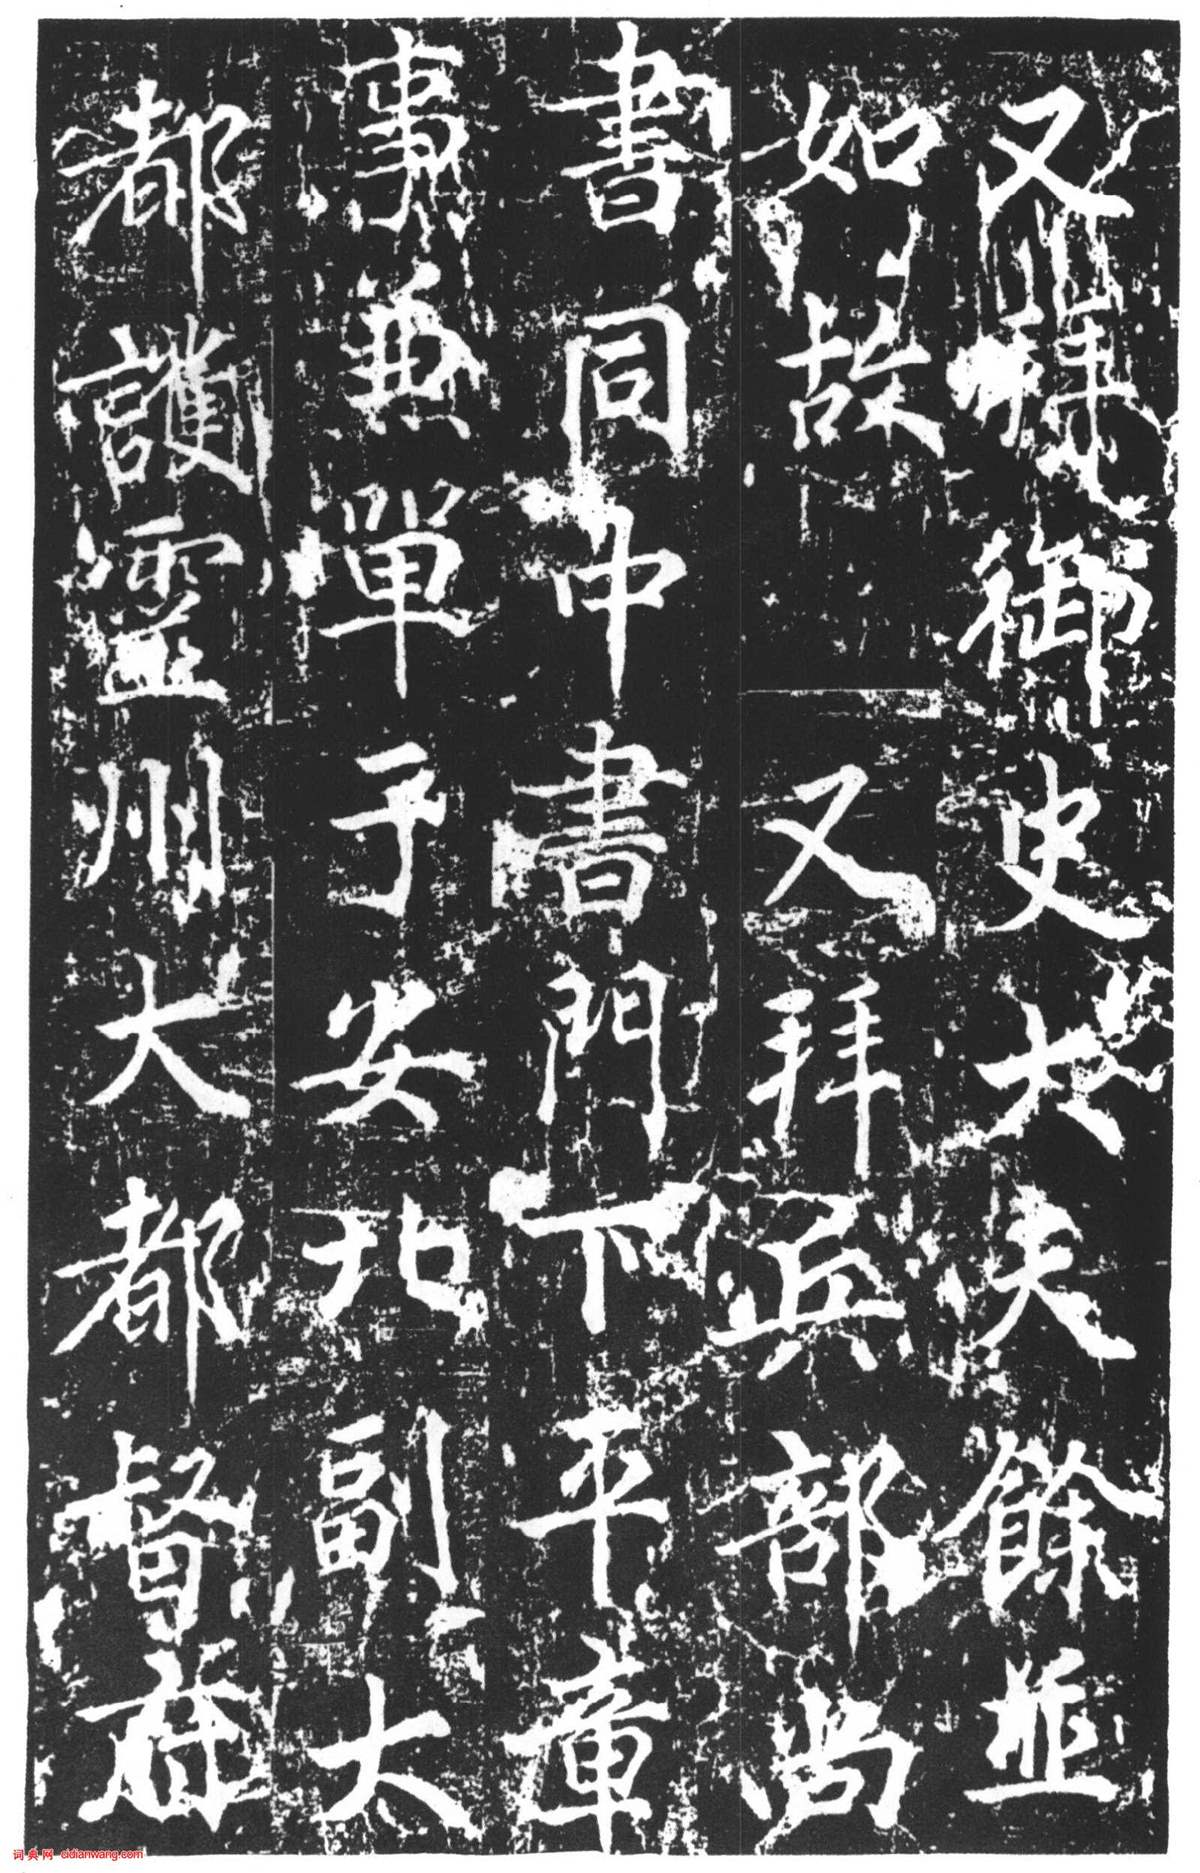 又御史大夫餘並
如故 又拜兵部尚
書同中書門下平章
事兼單于安北副大
都護靈州大都督府
词典网 cidianwang.com